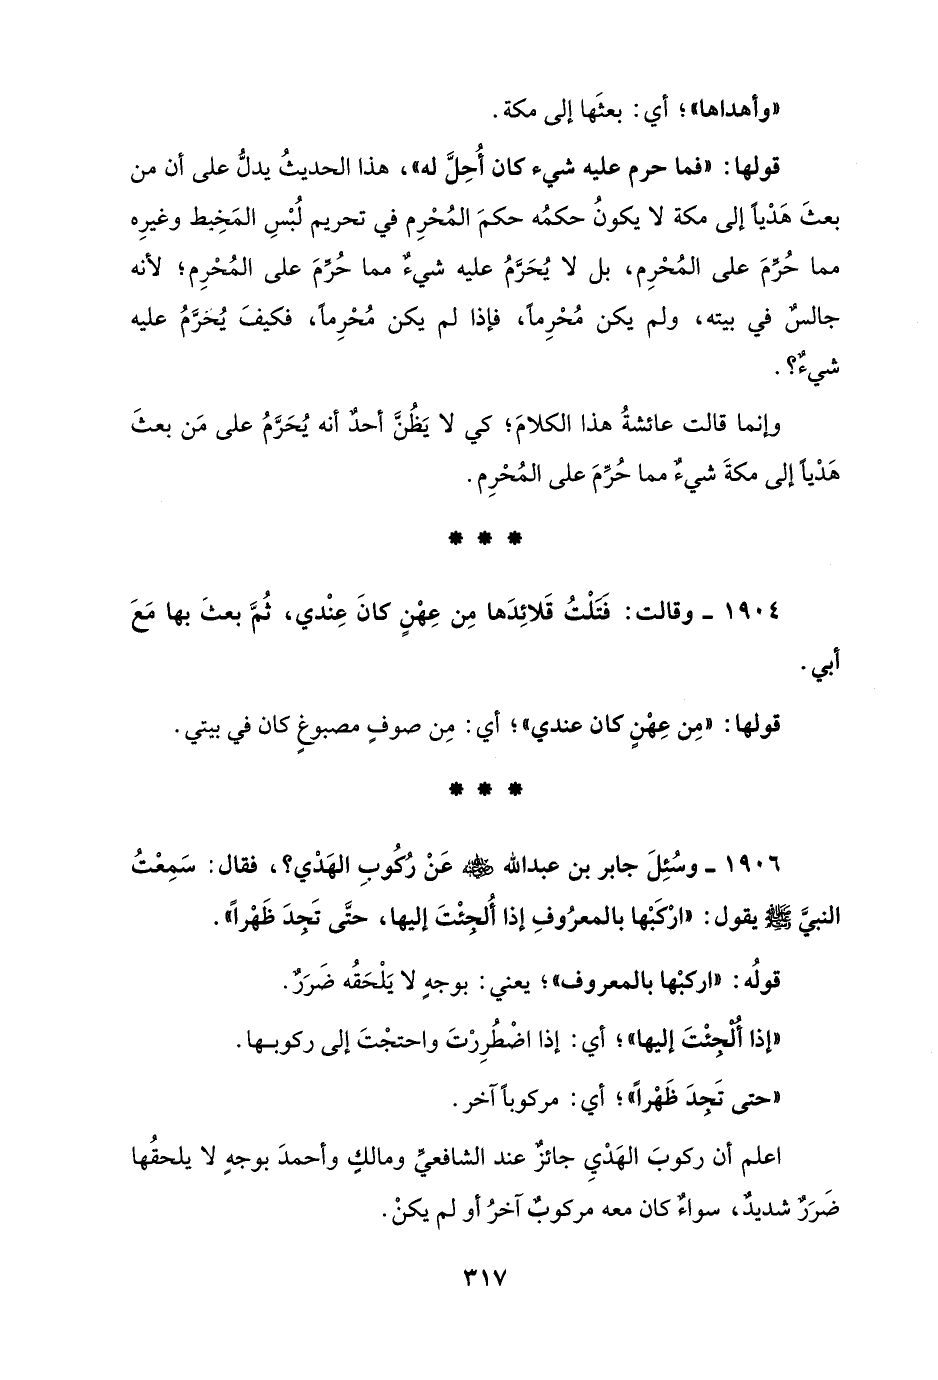 «وأهداها»؛ أي: بعثَها إلى مكة.
قولها: «فما حرم عليه شيء كان أُحِلَّ له»، هذا الحديثُ يدلُّ على أن من
بعثَ هَدْياً إلى مكة لا يكونُ حكمُه حكمَ المُحْرِم في تحريم لُبْسِ المَخِيط وغيرِه
مما حُرِّمَ على المُحْرِم، بل لا يُحَرَّمُ عليه شيءٌ مما حُرِّمَ على المُحْرِم؛ لأنه
جالسٌ في بيته، ولم يكن مُحْرِماً، فإذا لم يكن مُحْرِماً، فكيفَ يُحَرَّمُ عليه
شيءٌ؟.
وإنما قالت عائشةُ هذا الكلامَ؛ كي لا يَظُنَّ أحدٌ أنه يُحَرَّمُ على مَن بعثَ
هَدْياً إلى مكةَ شيءٌ مما حُرِّمَ على المُحْرِم.
* * *
١٩٠٤ ـ وقالت: فَتَلْتُ قَلائِدَها مِن عِهْنٍ كانَ عِنْدي، ثُمَّ بعثَ بها مَعَ
أبي.
قولها: «مِن عِهْنٍ كان عندي»؛ أي: مِن صوفٍ مصبوغٍ كان في بيتي.
* * *
١٩٠٦ ـ وسُئِلَ جابر بن عبدالله ﵁ عَنْ رُكُوبِ الهَدْي؟، فقال: سَمِعْتُ
النبيَّ ﷺ يقول: «ارْكَبْها بالمعرُوفِ إذا أُلجِئْتَ إليها، حتَّى تَجِدَ ظَهْراً».
قولُه: «اركبْها بالمعروف»؛ يعني: بوجهٍ لا يَلْحَقُه ضَرَرٌ.
«إذا أُلْجِئْتَ إليها»؛ أي: إذا اضْطُرِرْتَ واحتجْتَ إلى ركوبـها.
«حتى تَجِدَ ظَهْراً»؛ أي: مركوباً آخر.
اعلم أن ركوبَ الهَدْيِ جائزٌ عند الشافعيِّ ومالكٍ وأحمدَ بوجهٍ لا يلحقُها
ضَرَرٌ شديدٌ، سواءٌ كان معه مركوبٌ آخرُ أو لم يكنْ.
٣١٧